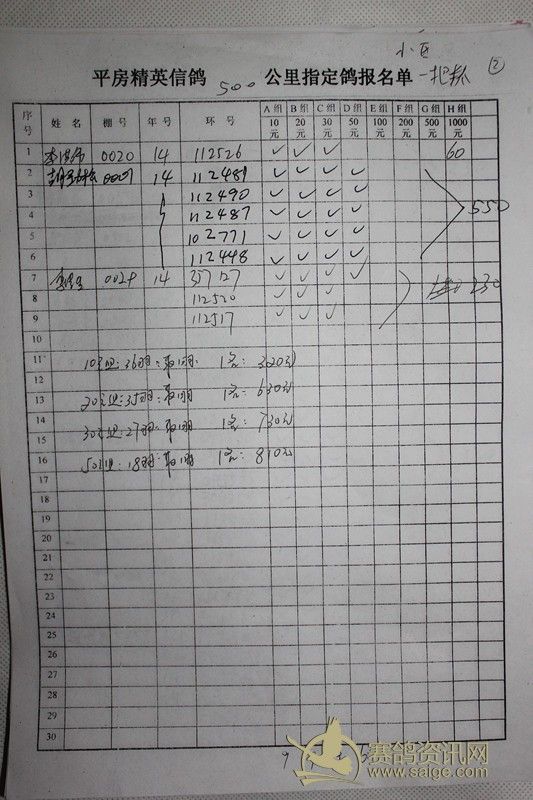 小区
平房精英信鸽 500 公里指定鸽报名单 一把抓 ②
序号 姓 名 棚 号 年 号 环 号 A 组 10 元 B 组 20 元 C 组 30 元 D 组 50 元 E 组 100 元 F 组 200 元 G 组 500 元 H 组 1000 元
1 0020 14 112526 ✓ ✓ ✓ 60
2 14 112481 ✓ ✓ ✓ ✓
3 112490 ✓ ✓ ✓ ✓
4 112487 ✓ ✓ ✓ ✓ 550
5 102771 ✓ ✓ ✓ ✓
6 112448 ✓ ✓ ✓ ✓
7 14 357127 ✓ ✓ ✓ ✓ 230
8 112520 ✓ ✓ ✓
9 112517 ✓ ✓ ✓
10
11 10元组:36羽 取1羽 1名: 320元
12
13 20元组:35羽 取1羽 1名: 630元
14
15 30元组:27羽 取1羽 1名: 730元
16 50元组:18羽 取1羽 1名: 810元
17
18
19
20
21
22
23
24
25
26
27
28
29
30
赛鸽资讯网
www.saige.com